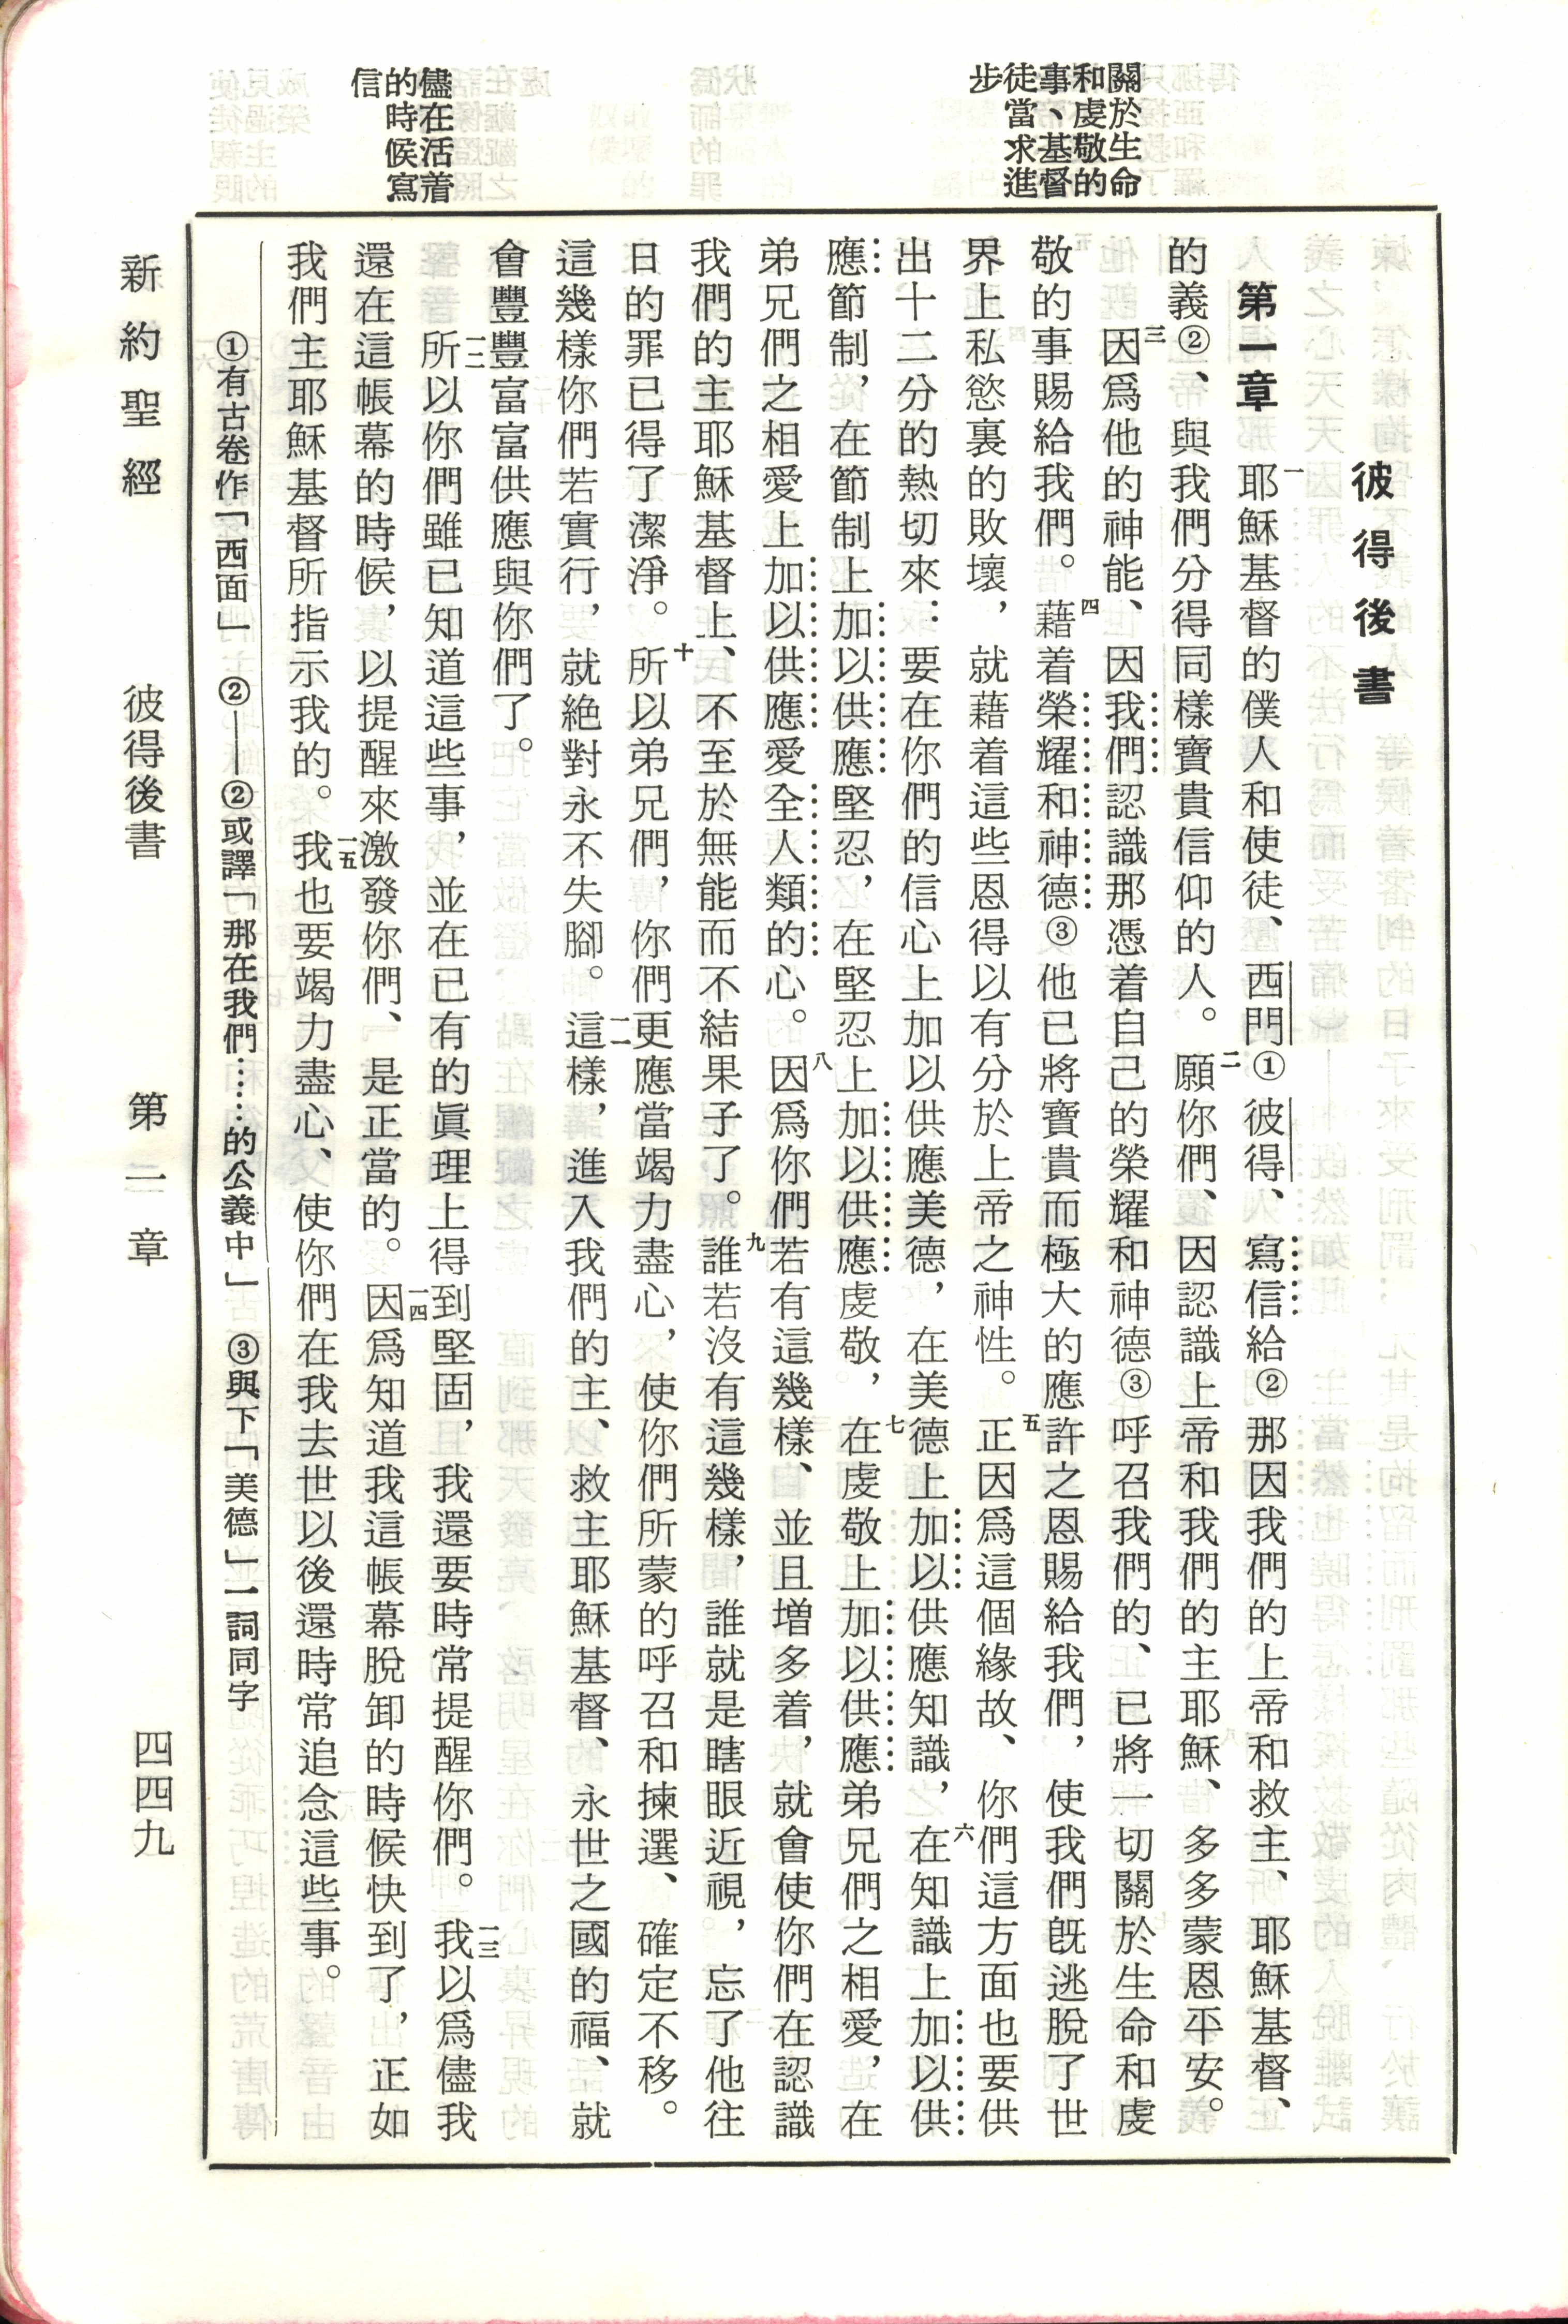 關於生命
和虔敬的
事、基督
徒當求進
步
儘在活着
的時候寫
信
彼得後書
第一章 一耶穌基督的僕人和使徒、西門①彼得、寫信給②那因我們的上帝和救主、耶穌基督、
的義②、與我們分得同樣寶貴信仰的人。二願你們、因認識上帝和我們的主耶穌、多多蒙恩平安。
三因爲他的神能、因我們認識那憑着自己的榮耀和神德③呼召我們的、已將一切關於生命和虔
敬的事賜給我們。四藉着榮耀和神德③他已將寶貴而極大的應許之恩賜給我們，使我們旣逃脫了世
界上私慾裏的敗壞，就藉着這些恩得以有分於上帝之神性。五正因爲這個緣故、你們這方面也要供
出十二分的熱切來：要在你們的信心上加以供應美德，在美德上加以供應知識，六在知識上加以供
應節制，在節制上加以供應堅忍，在堅忍上加以供應虔敬，七在虔敬上加以供應弟兄們之相愛，在
弟兄們之相愛上加以供應愛全人類的心。八因爲你們若有這幾樣、並且增多着，就會使你們在認識
我們的主耶穌基督上、不至於無能而不結果子了。九誰若沒有這幾樣，誰就是瞎眼近視，忘了他往
日的罪已得了潔淨。十所以弟兄們，你們更應當竭力盡心，使你們所蒙的呼召和揀選、確定不移。
這幾樣你們若實行，就絕對永不失腳。一一這樣，進入我們的主、救主耶穌基督、永世之國的福、就
會豐豐富富供應與你們了。
一二所以你們雖已知道這些事，並在已有的眞理上得到堅固，我還要時常提醒你們。一三我以爲儘我
還在這帳幕的時候，以提醒來激發你們、是正當的。一四因爲知道我這帳幕脫卸的時候快到了，正如
我們主耶穌基督所指示我的。一五我也要竭力盡心、使你們在我去世以後還時常追念這些事。
①有古卷作「西面」 ②——②或譯「那在我們……的公義中」 ③與下「美德」一詞同字
新約聖經 彼得後書 第一章 四四九